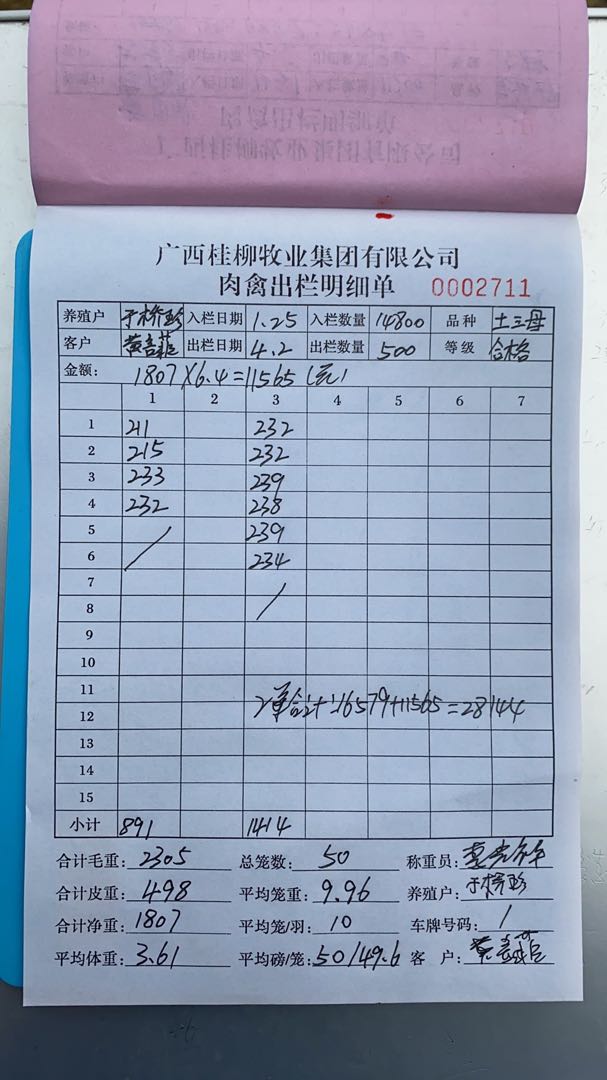 广西桂柳牧业集团有限公司
肉禽出栏明细单 0002711
养殖户 入栏日期 1.25 入栏数量 14800 品种 土三母
客户 出栏日期 4.2 出栏数量 500 等级 合格
金额: 1807×6.4=11565(元)
1 2 3 4 5 6 7
1 211 232
2 215 232
3 233 239
4 232 238
5 / 239
6 234
7
8 /
9
10
11
12 2单合计:16579+11565=28144
13
14
15
小计 891 1414
合计毛重: 2305 总笼数: 50 称重员:
合计皮重: 498 平均笼重: 9.96 养殖户:
合计净重: 1807 平均笼/羽: 10 车牌号码: /
平均体重: 3.61 平均磅/笼: 50/49.6 客 户: